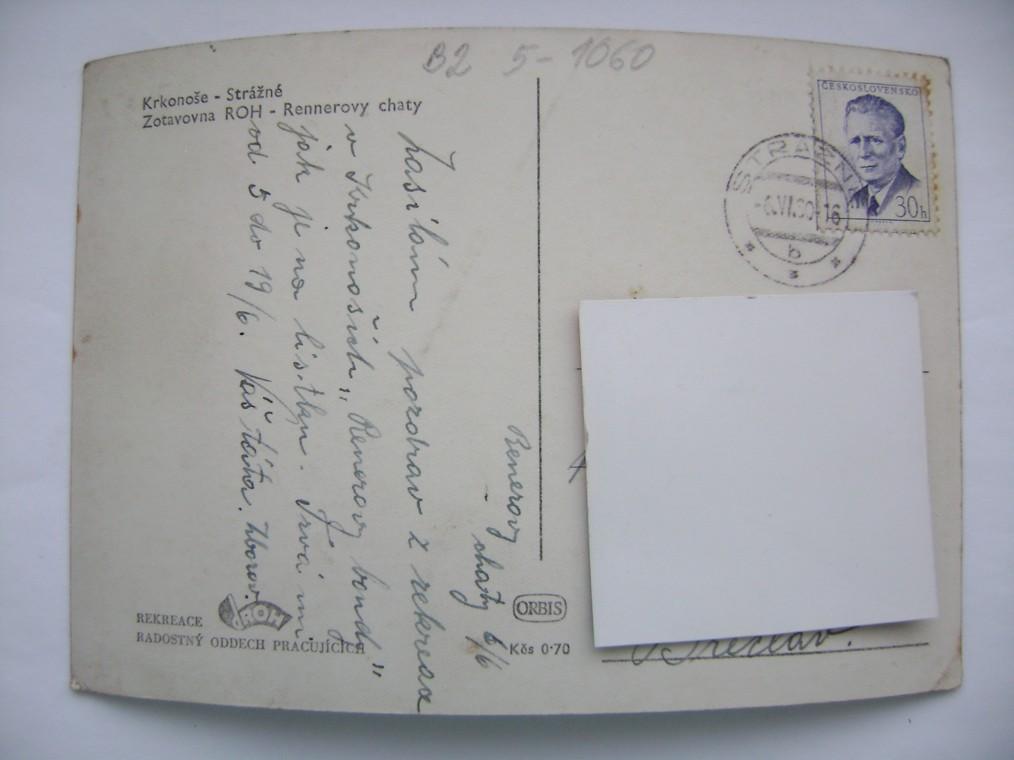 B2 5-1060
Krkonoše - Strážné
Zotavovna ROH - Rennerovy chaty
ČESKOSLOVENSKO
30h
STRÁŽNÉ
-6.VI.60-16
b
Renerovy
chaty 6/6
Zasílám pozdrav z rekreace
v Krkonoších „Renerovy boudy"
jak je na lístku. Trvá mi
od 5 do 19/6. Váš táta. Zborov.
REKREACE
ROH
RADOSTNÝ ODDECH PRACUJÍCÍCH
ORBIS
Kčs 0·70
Břeclav.